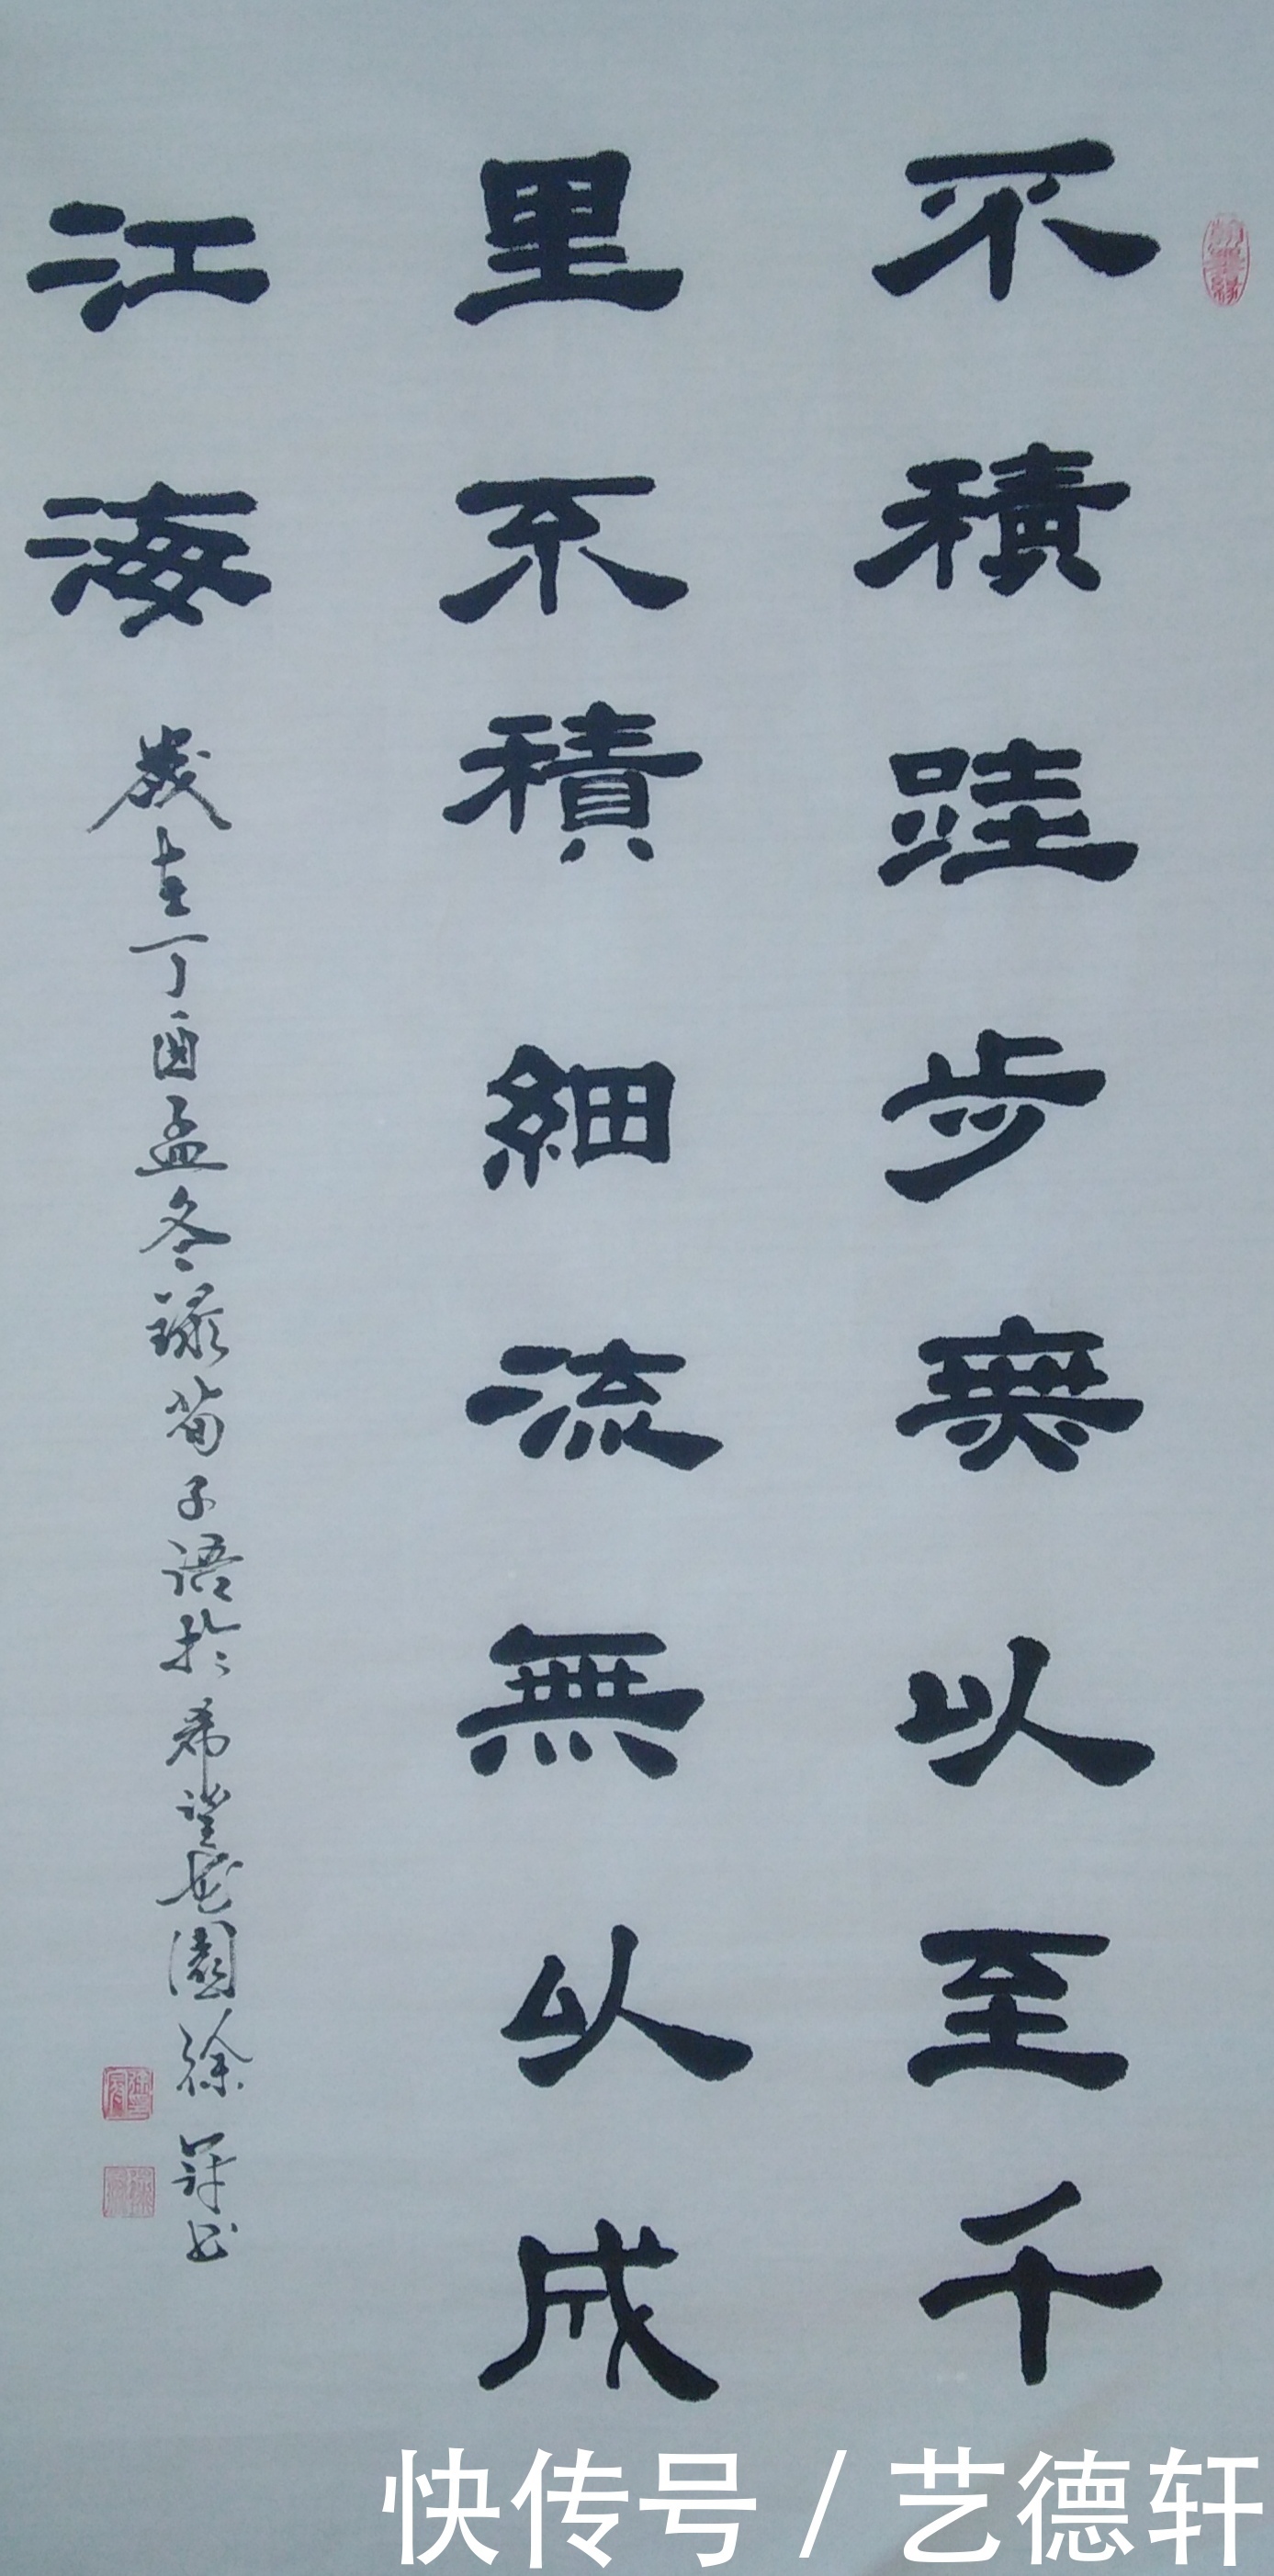 不積跬步無以至千
里不積細流無以成
江海
歲在丁酉孟冬録荀子语於希望花園徐 书
翰墨緣
快传号 / 艺德轩